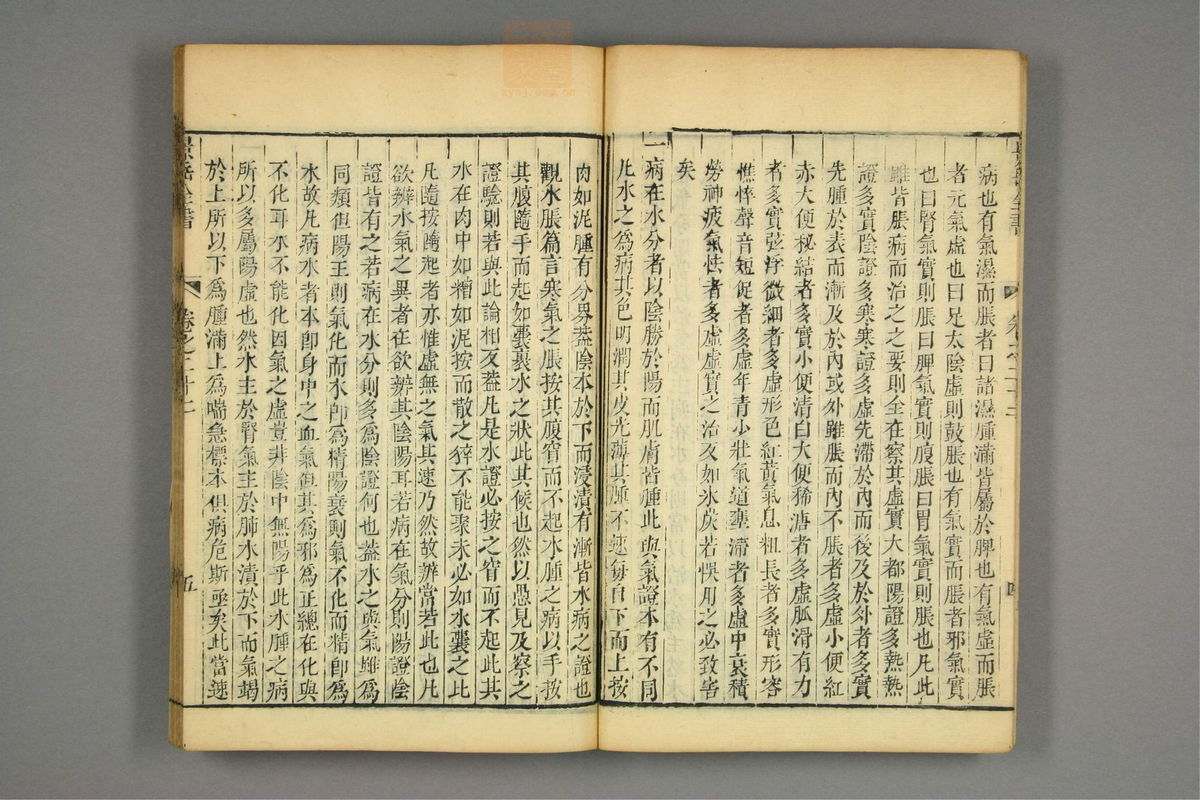 病也有氣濕而脹者曰諸濕腫滿皆屬於脾也有氣虛而脹
者元氣虛也曰足太陰虛則鼓脹也有氣實而脹者邪氣實
也曰腎氣實則脹曰脾氣實則腹脹曰胃氣實則脹也凡此
雖皆脹病而治之之要則全在察其虛實大都陽證多熱熱
證多實陰證多寒寒證多虛先滯於內而後及於外者多實
先腫於表而漸及於內或外雖脹而內不脹者多虛小便紅
赤大便秘結者多實小便清白大便稀溏者多虛脈滑有力
者多實弦浮微細者多虛形色紅黃氣息粗長者多實形容
憔悴聲音短促者多虛年青小壯氣道壅滯者多虛中衰積
勞神疲氣怯者多虛虛實之治反如氷炭若悞用之必致害
矣
一病在水分者以陰勝於陽而肌膚皆腫此與氣證本有不同
凡水之爲病其色明潤其皮光薄其腫不速每自下而上按
肉如泥腫有分界葢陰本於下而浸漬有漸皆水病之證也
觀水脹篇言寒氣之脹按其腹窅而不起水腫之病以手按
其腹隨手而起如囊裹水之狀此其候也然以愚見及察之
證驗則若與此論相反葢凡是水證必按之窅而不起此其
水在肉中如糟如泥按而散之猝不能聚未必如水囊之比
凡隨按隨起者亦惟虛無之氣其速乃然故辨當若此也凡
欲辨水氣之異者在欲辨其陰陽耳若病在氣分則陽證陰
證皆有之若病在水分則多爲陰證何也葢水之與氣雖爲
同類但陽王則氣化而水卽爲精陽衰則氣不化而精卽爲
水故凡病水者本卽身中之血氣但其爲邪爲正總在化與
不化耳水不能化因氣之虛豈非陰中無陽乎此水腫之病
所以多屬陽虛也然水主於腎氣主於肺水漬於下而氣竭
於上所以下爲腫滿上爲喘急標本俱病危斯亟矣此當速
景岳全書
卷之二十二
五